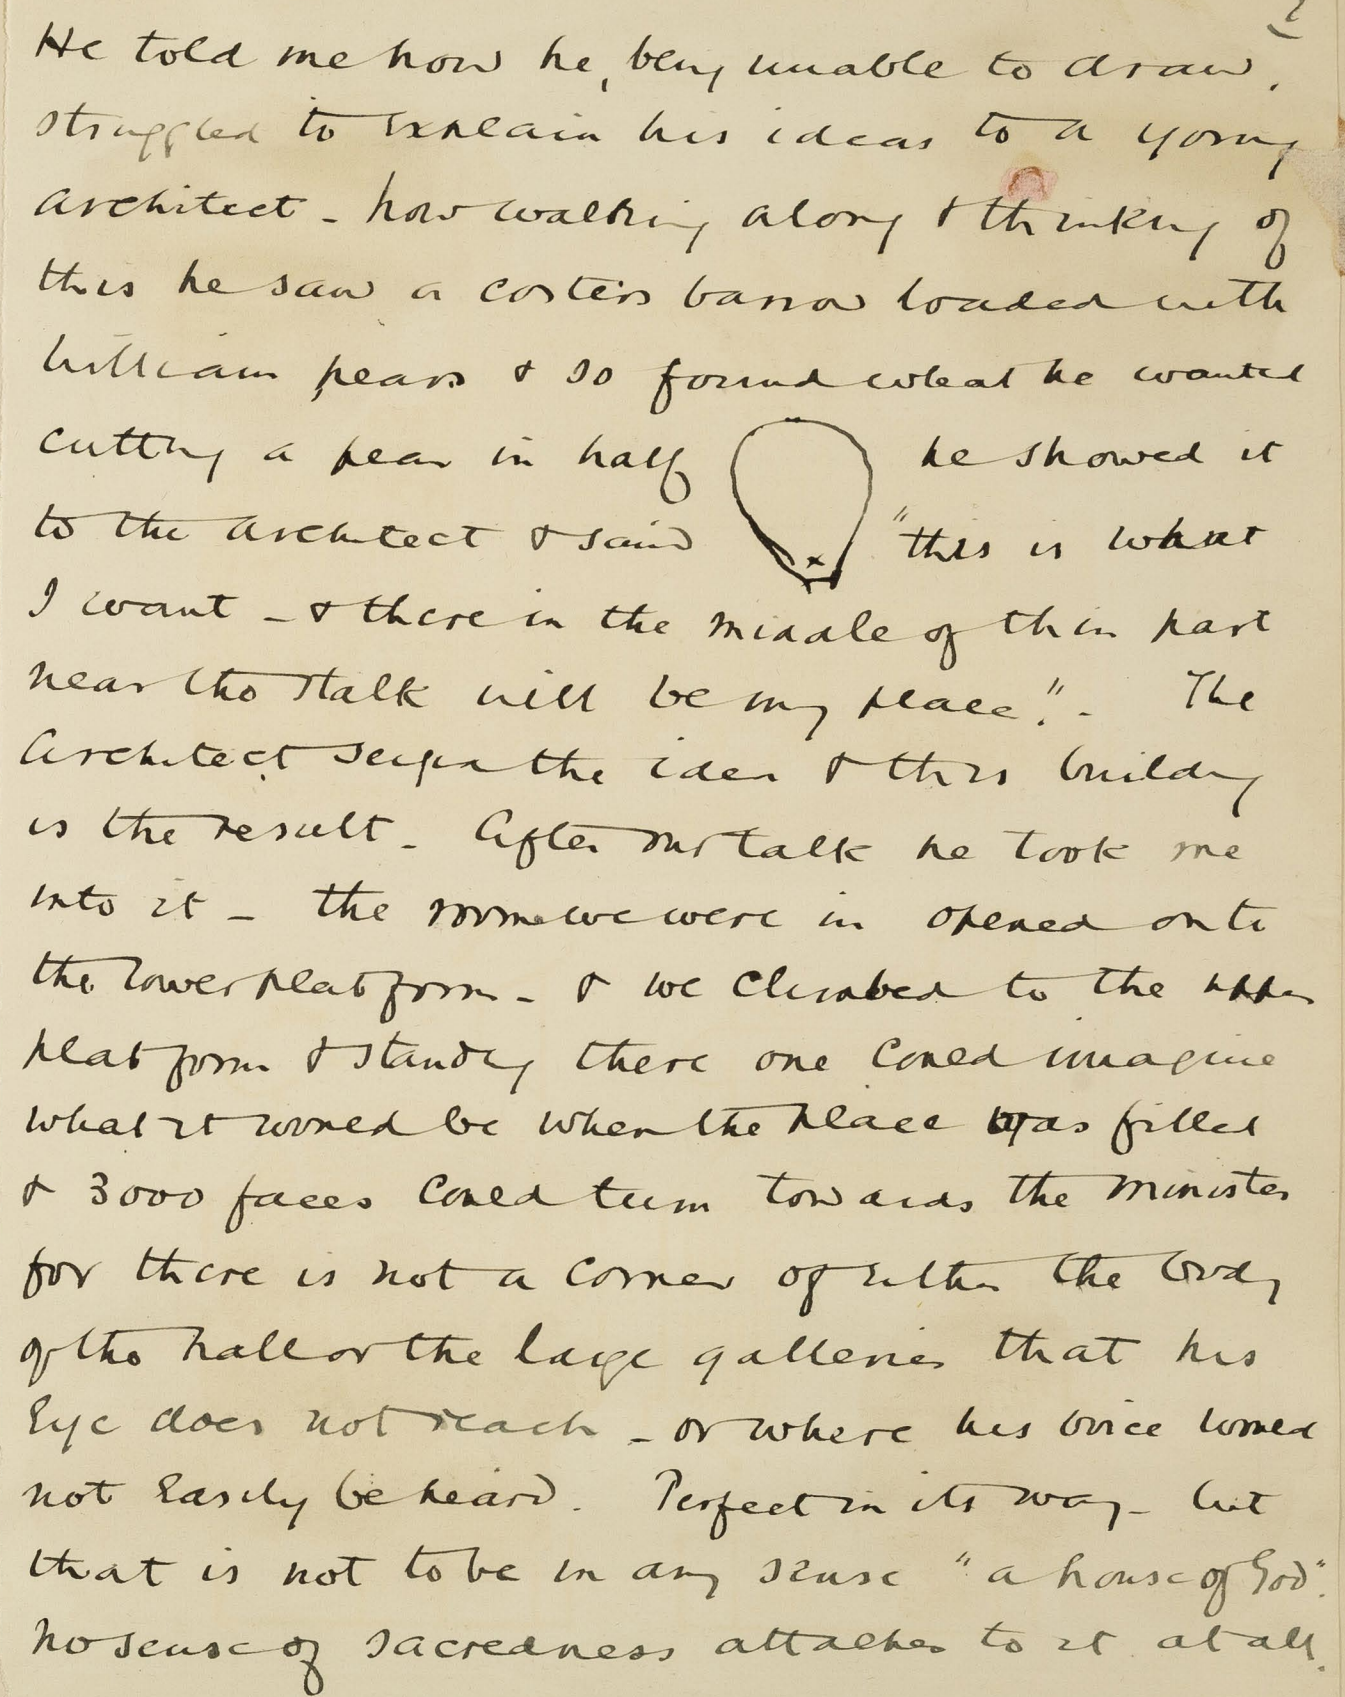 2
He told me how he, being unable to draw,
struggled to explain his ideas to a young
architect - how walking along & thinking of
this he saw a costers barrow loaded with
William pears & so found what he wanted
cutting a pear in half he showed it
to the architect & said "this is what
I want - & there in the middle of thin part
near the stalk will be my place." - The
Architect seized the idea & this building
is the result - After our talk he took me
into it - the room we were in opened onto
the lower platform - & we climbed to the upper
platform & standing there one could imagine
what it would be when the place was filled
& 3000 faces could turn towards the minister
for there is not a corner of either the body
of the hall or the large galleries that his
Eye does not reach - or where his voice would
not Easily be heard. Perfect in its way - but
that is not to be in any sense "a house of God".
no sense of sacredness attaches to it at all.